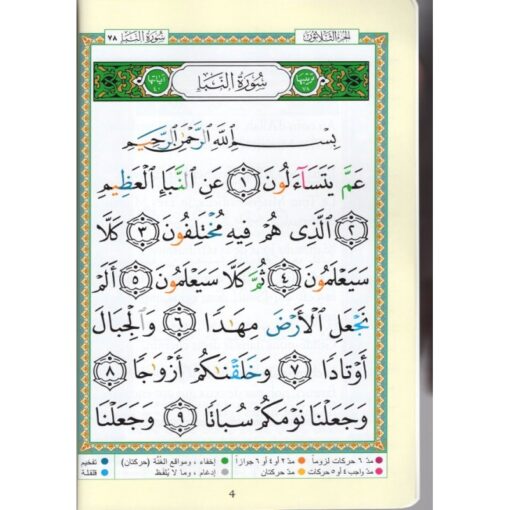 الجزء الثلاثون سورة النبأ ٧٨
ترتيبها ٧٨ سُورَةُ النَّبَإِ آياتها ٤٠
بِسْمِ اللَّهِ الرَّحْمَٰنِ الرَّحِيمِ
عَمَّ يَتَسَآءَلُونَ ١ عَنِ النَّبَإِ الْعَظِيمِ
٢ الَّذِى هُمْ فِيهِ مُخْتَلِفُونَ ٣ كَلَّا
سَيَعْلَمُونَ ٤ ثُمَّ كَلَّا سَيَعْلَمُونَ ٥ أَلَمْ
نَجْعَلِ الْأَرْضَ مِهَٰدًا ٦ وَالْجِبَالَ
أَوْتَادًا ٧ وَخَلَقْنَٰكُمْ أَزْوَٰجًا ٨
وَجَعَلْنَا نَوْمَكُمْ سُبَاتًا ٩ وَجَعَلْنَا
مدّ ٦ حركات لزوماً مدّ ٢ أو ٤ أو ٦ جوازاً إخفاء ، ومواقع الغُنَّة (حركتان) تفخيم
مدّ واجب ٤ أو ٥ حركات مدّ حركتان إدغام ، وما لا يُلفظ قلقلة
4